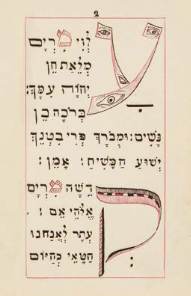 שלוי מרים
מלאת חן
יהוה עמך:
ברכה בן
נשים: ומברך פרי בטנך
ישוע המשיח: אמן:
קדשה מרים
אלהי אם:
עתר לאנחנו
חטאי כהיום